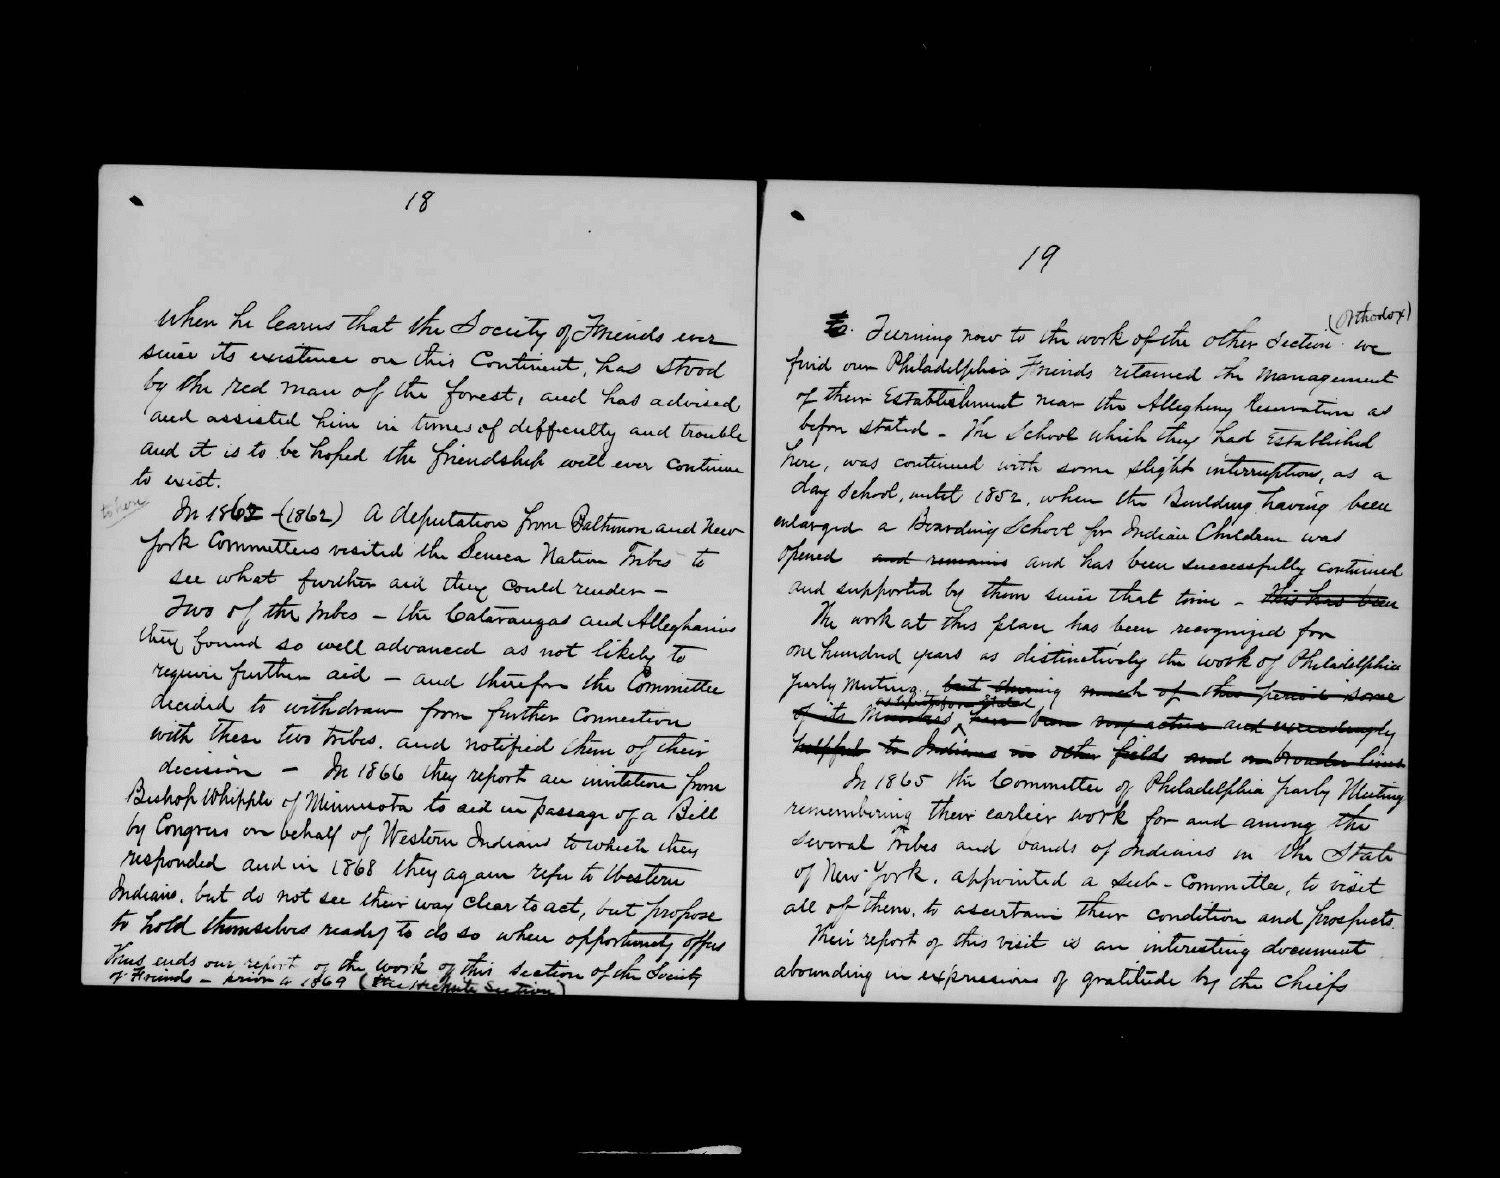 18
when he learns that the Society of Friends ever
since its existence on this Continent, has stood
by the red man of the forest, and has advised
and assisted him in times of difficulty and trouble
and it is to be hoped the friendship will ever continue
to exist.
to here
In 1862 - (1862) A deputation from Baltimore and New
York Committees visited the Seneca Nation Tribes to
see what further aid they could render -
Two of the tribes - the Cataraugas and Alleghanies
they found so well advanced as not likely to
require further aid - and therefore the Committee
decided to withdraw from further Connection
with these two tribes. and notified them of their
decision - In 1866 they report an invitation from
Bishop Whipple of Minnesota to aid in passage of a Bill
by Congress on behalf of Western Indians to which they
responded and in 1868 they again refer to Western
Indians, but do not see their way clear to act, but propose
to hold themselves ready to do so when opportunity offers
Thus ends our report of the work of this section of the Society
of Friends - prior to 1869 (the Hicksite Section)
19
(Orthodox)
Turning now to the work of the other Section we
find our Philadelphia Friends retained the management
of their Establishment near the Allegheny Reservation as
before stated - The School which they had Established
here, was continued with some slight interruption, as a
day School, until 1852, when the Building having been
enlarged a Boarding School for Indian Children was
opened and remains and has been successfully continued
and supported by them since that time - This has been
The work at this place has been recognized for
one hundred years as distinctively the work of Philadelphia
Yearly Meeting. but during much of this period some
of its Members have been very active and exceedingly
helpful to Indians in other fields and on broader lines
In 1865 the Committee of Philadelphia Yearly Meeting
remembering their earlier work for and among the
several Tribes and bands of Indians in the State
of New-York, appointed a sub-committee, to visit
all of them, to ascertain their condition and prospects.
Their report of this visit is an interesting document
abounding in expressions of gratitude by the Chiefs